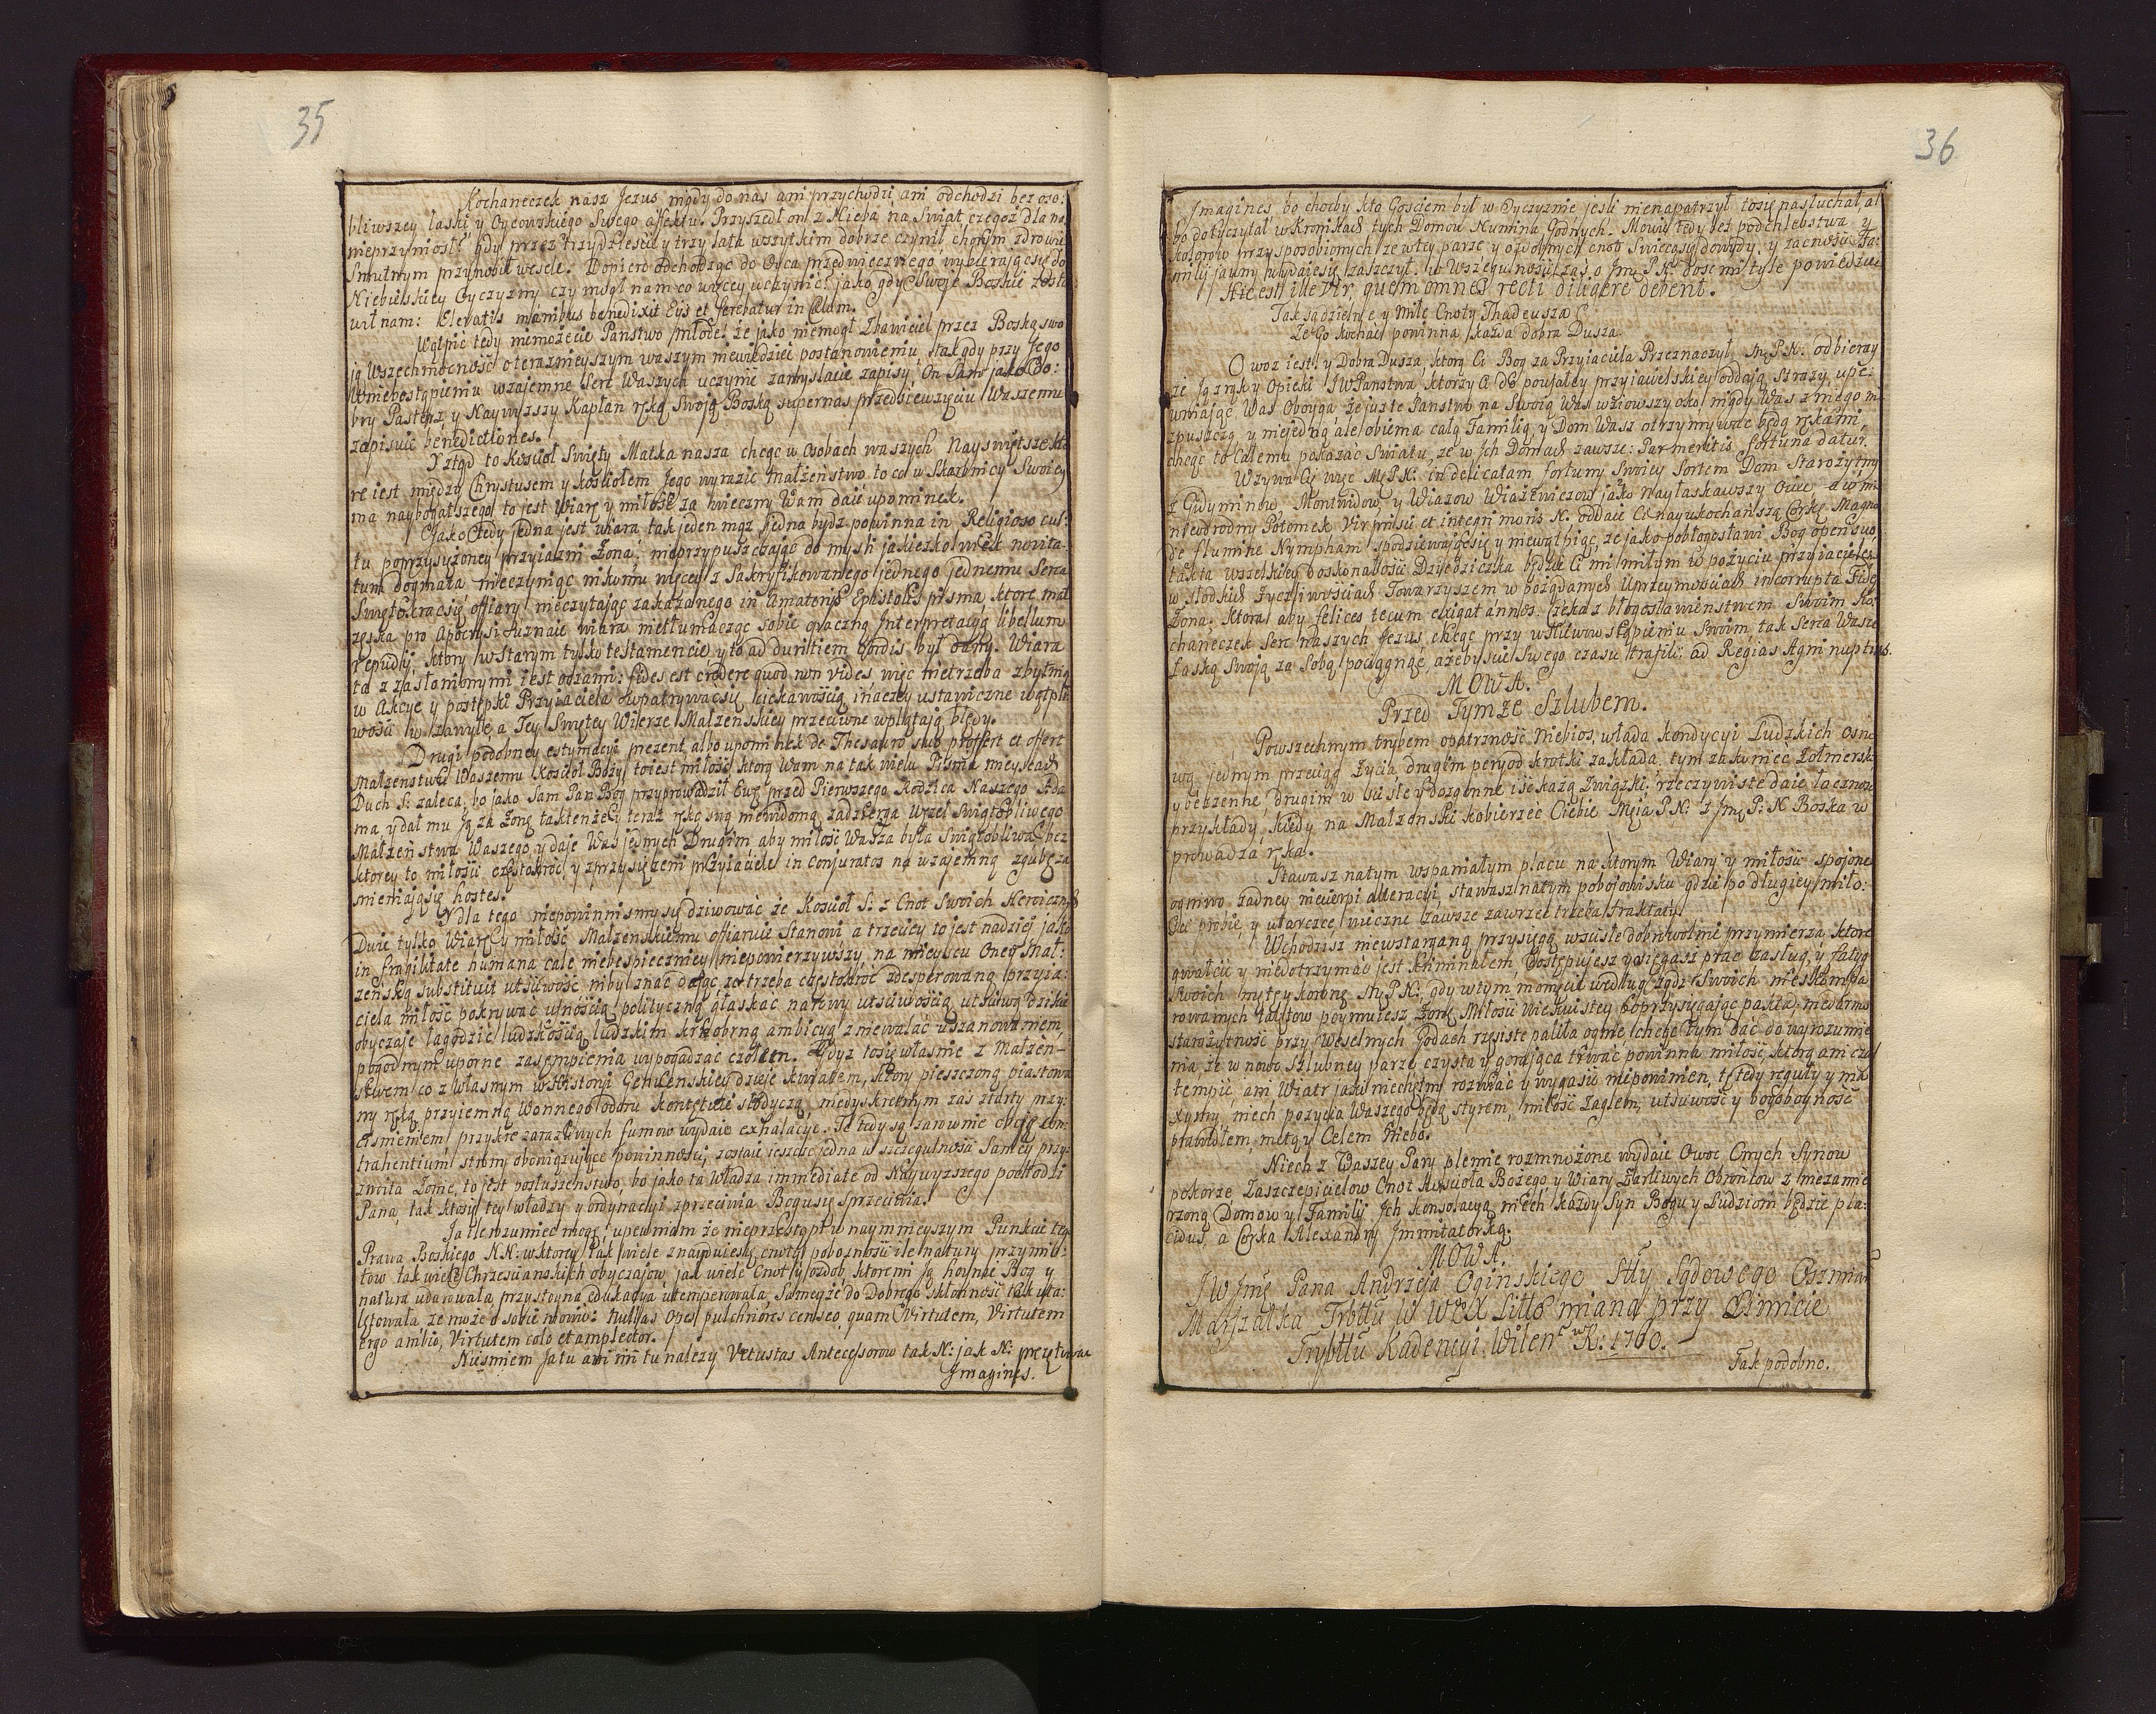 35
Kochaneczek nasz Jezus nigdy do nas ani przychodzi ani odchodzi bez oso:
bliwszey łaski y Oycowskiego Swego affektu. Przyszedł on z Nieba na Swiat, czegoż dla nas
nieprzyniosł? gdy przez trzydzieści y trzy lata wszytkim dobrze czynił, chorym zdrowie
Smutnym przynosił wesele. Dopiero odchodząc do Oyca przedwiecznego wybierając się do
Niebieskiey Oyczyzny czy mogł nam co więcey uczynić? jako gdy Swoje Boskie zosta
wił nam: Elevatis manibus benedixit Eis et ferebatur in Cœlum.
Wątpić tedy niemożecie Państwo Młode! że jako niemogł Zbawiciel przez Boską swo
ją Wszechmocność o teraznieyszym waszym niewiedzieć postanowieniu, tak gdy przy Jego
Wniebostąpieniu wzajemne Serc Waszych uczynić zamyslacie zapisy, On Sam jako Do:
bry Pasterz y Naywyższy Kapłan ręką Swoją Boską supernas przedsięwzięciu Waszemu
zapisuie benedictiones.
Y ztąd to Kościoł Swięty Matka nasza chcąc w Osobach waszych Nayswiętsze kto
re iest między Chrystusem y Kościołem Jego wyrazić Małżeństwo to co w Skarbnicy Swoiey
ma naybogatszego to jest Wiarę y miłość za wieczny Wam daie upominek.
Jako tedy jedna jest wiara tak jeden mąż jedna bydz powinna in Religioso cul:
tu poprzysiężoney przyiazni Żona; nieprzypuszczając do mysli jakieżkolwiek novita:
tum dogmata nieczyniąc nikomu więcey z Sakryfikowanego jednego jednemu Serca
Swiętokracsię offiary nieczytając zakazanego in Amatorijs Epistolis pisma, ktore mał
zęska pro Apocryfi uznaie wiara nietłumacząc sobie opaczną Interpretacyą libellum
repudij, ktory w Starym tylko testamencie y to ad duritiem cordis był dany. Wiara
ta z zasłonionymi jest oczami: fides est credere quod non vides, więc nietrzeba zbytnią
w Akcye y postępki Przyjaciela wpatrywaćsię ciekawością inaczey ustawiczne wątpli
wości w zawyłe, a Tey Swiętey Wierze Małżenskiey przeciwne wplątają błędy.
Drugi podobney estymacyi prezent albo upominek de Thesauro suo proffert et offert
Małzenstwu Waszemu Kościoł Boży, to iest miłość ktorą Wam na tak wielu Pisma mieyscach
Duch S: zaleca, bo jako Sam Pan Bog przyprowadził Ewę przed Pierwszego Rodzica Naszego Ada
ma, y dał mu Ją za Żonę tak tenże y teraz ręką swą niewidomą zadzierga Węzeł Swiątobliwego
Małżeństwa Waszego y daje Was jednych Drugim aby miłość Wasza była Swiątobliwa bez
ktorey to miłości częstokroć y zprzysiężeni przyiaciele in conjuratos na wzajemną zgubę za
mieniająsię hostes.
Y dla tego niepowinnismy się dziwować że Kościoł S: z Cnot Swoich Heroicznych
Dwie tylko Wiarę y miłość Małżenskiemu offiaruie Stanowi a trzeciey to jest nadziei jako
in fragilitate humana cale niebespieczniey niepowierzywszy, na mieyscu Oney Mał:
żeńską substituit uczciwość niby znać dając że trzeba częstokroć zdesperowaną przyja:
ciela miłość pokrywać ufnością polityczną głaskać narowy uczciwością uczciwą dzikie
obyczaje łagodzić ludzkością ludzkim krnąbrną ambicyą zniewalać uszanowaniem,
pogodnym uporne zasępienia wypogadzać czołem. Gdyż tosię własnie z Małżen-
stwem co z własnym w Historyi Gentilenskiey dzieje kwiatem, ktory pieszczoną piastowa
ny ręką przyiemną Wonnego odoru kontętuie słodyczą, niedyskretnym zas ztarty przy:
cisnieniem przykre zaraźliwych fumow wydaie exhalacye. Te tedy są zarownie obcię con:
trahentium strony obowiązujące powinności, zostaie ieszcze jedna w szczegulności Samey przy:
zwoita Żonie, to jest posłuszenstwo, bo jako ta Władza immediate od Naywyższego pochodzi
Pana, tak ktosię tey władzy y ordynacyi sprzeciwia Bogusię Sprzeciwia.
Ja ile rozumieć mogę, upewniam że nieprzestąpi w naymnieyszym Punkcie tego
Prawa Boskiego N.N: w ktorey tak wiele z naypuiesz cnoty, pobożności ile natury przymio:
tow tak wiele Chrzescianskich obyczajow jak wiele Cnot y ozdob, ktoremi Ją hoynie Bog y
natura udarowała, przystoyna edukacya utemperowała, Sameyże do Dobrego skłonność tak uta:
lętowała że może o sobie mowić: nullas opes pulchriores censeo, quam Virtutem, Virtutem
ergo ambio, Virtutem colo et amplector.
Niesmiem Ja tu ani mi tu należy Vetustas Antecessorow tak N: jak N: przytaczac
Imagines.
36
Imagines bo choćby kto Gosciem był w Oyczyznie jesli nienapatrzył tosię nasłuchał, al
bo doczytał w Kronikach tych Domow Numina Godnych. Mowię tedy bez podchlebstwa y
kolorow przysposobionych że w tey parze y ozdobnych cnot Swiecąsię dowody, y zacności Fa:
milij jawny wydajesię zaszczyt. W Wszczegulności zaś o Jmę P. N: dosć mi tyle powiedzieć
Hic est ille Vir, quem omnes recti diligere debent.
Tak są dzielne y Miłe Cnoty Thadeusza
Że Go kochać powinna każda dobra Dusza.
Owoż iest y Dobra Dusza, ktorą Ci Bog za Przyjaciela Przeznaczył, Mę P. N: odbieray
że Ją z ręky Opieki JWPanstwa ktorzy A do poufałey przyiacielskiey oddają Straży, upe:
wniając Was Oboyga że już te Panstwo na Swoią Was wziowszy oko nigdy Was z niego n
zpuszczą, y niejedną ale obiema całą Familią y Dom Wasz otrzymywać będą rękami,
chcąc to Całemu pokazać Światu, że w Ich Domach zawsze: Par meritis fortuna datur.
Wzywa Cię więc Mę P. N: in delicatam fortuny Swoiey Sortem Dom Starożytny
z Gidyminow, Montwidow, y Wiazow Wiażewiczow jako nayłaskawszy Ociec a wni
niewdrodny Potomek Viri misii et integri moris N. oddaie Ci nayukochanszą Corkę Magno
de flumine Nympham spodziewającsię y niewątpiąc, że jako pobłogosławi Bog open suo
takta wszelkiey doskonałości Dziedziczka będzie Ci mi miłym w pożyciu przyiacielem
w słodkich Zyczliwościach Towarzyszem w pożądanych Uprzeymościach incorrupta Fide
Żona: ktora aby felices tecum exigat annos. Czeka z błogosławienstwem Swoim Ko:
chaneczek Serc naszych Jezus, chcąc przy w Niebowstąpieniu Swoim tak Serca Wasze
Łaską Swoją za Sobą pociągnąć ażebyscie Swego czasu trafili: ad Regias Agni nuptias.
MOWA.
Przed Tymże Szlubem.
Powszechnym trybem opatrzność Niebios, włada Kondycyi Ludzkich osno
wą, jednym przeciąg Życia, drugim peryod krotki zakłada, tym zakwnieć Żołnierskie
y bezżenne, Drugim w scisłe y dozgonne isć każą Związki; rzeczywiste daie łączność
przykłady, kiedy na Małżenski kobierzec Ciebie Męia P. N: z Jmę P: N Boska w
prowadza ręka.
Stawasz natym wspaniałym placu na ktorym Wiary y miłości spojone
ogniwo żadney niecierpi alteracyi, stawasz natym pobojowisku gdzie po długiey miło:
ści probie, y utarczce wieczne zawsze zawrzec trzeba traktaty.
Wchodzisz niewstarganą przysięgą wscisłe dobrowolnie przymierza ktore
gwałcić y niedotrzymać jest kriminałem, Dostępujesz y osięgasz prac zasług y fatyg
Swoich mytę y koronę Mę P. N: gdy w tym momęcie według żądz Swoich nieskompa
rowanych talętow poymuiesz Żonę Miłości wiekuistey poprzysięgając pakta, niedarmo
starożytność przy Weselnych Godach rzęsiste paliła ognie, chcąc tym dać do wyrozumie
nia, że w nowo Szlubney parze czysta y gorająca trwać powinna miłość, ktorą ani czas
tempić, ani Wiatr jaki niechętny rozwiać y wygasić niepowinien, te tedy reguły y ma
xymy, niech pożycia Waszego będą styrem, miłość Żaglem, uczciwość y bogobogność
prawidłem, metą y Celem Niebo.
Niech z Waszey Pary plemie rozmnożone wydaie Owoc Cnych Synow
pokorze Zaszczepicielow Cnot Koscioła Bożego y Wiary Żarliwych Obrońcow z niezamie
rzoną Domow y Familij Ich konsolacyą niech każdy Syn Bogu y Ludziom będzie pla:
cidus, a Corka Alexandry Immitatorką.
MOWA.
JW Jmę Pana Andrzeja Oginskiego Stty Sądowego Oszmian
Marszałka Trbttu W WoX Litto miana przy Limicie
Trybttu Kadencyi Wilen: w R: 1760.
Tak podobno.